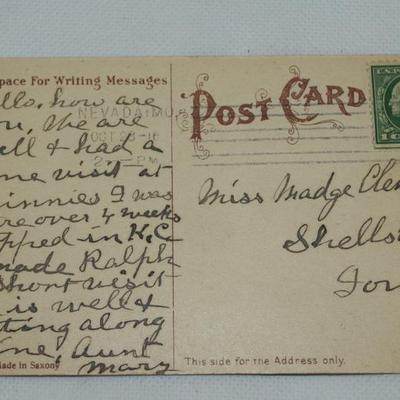 pace For Writing Messages
ello, how are
ou, We are
ell & had a
ne visit at
innies I was
re over 4 weeks
pped in K.C
made Ralph
short visit
is well &
ting along
ine, Aunt
Mary
ade in Saxony
NEVADA. MO.
OCT 28
2 PM
POST CARD
Miss Madge Clem
Shells
Iow
This side for the Address only.